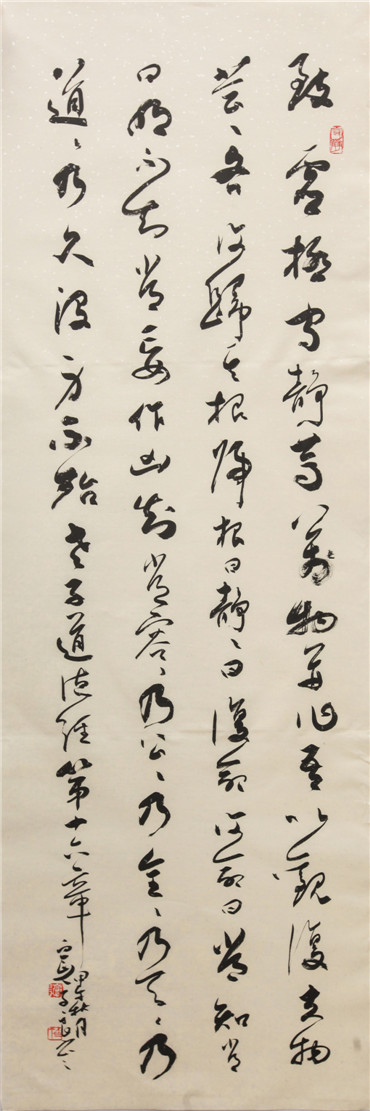 致虛極守靜篤萬物並作吾以觀復夫物
芸〻各復歸其根歸根曰靜〻曰復命復命曰常知常
曰明不知常妄作凶知常容〻乃公〻乃全〻乃天〻乃
道〻乃久沒身不殆老子道德經第十六章
甲午秋月